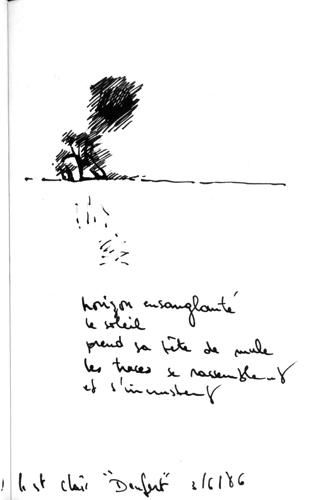 horizon ensanglanté
le soleil
prend sa tête de mule
les traces se rassemblent
et s'incrustent
st clair "Denfert" 2/6/86